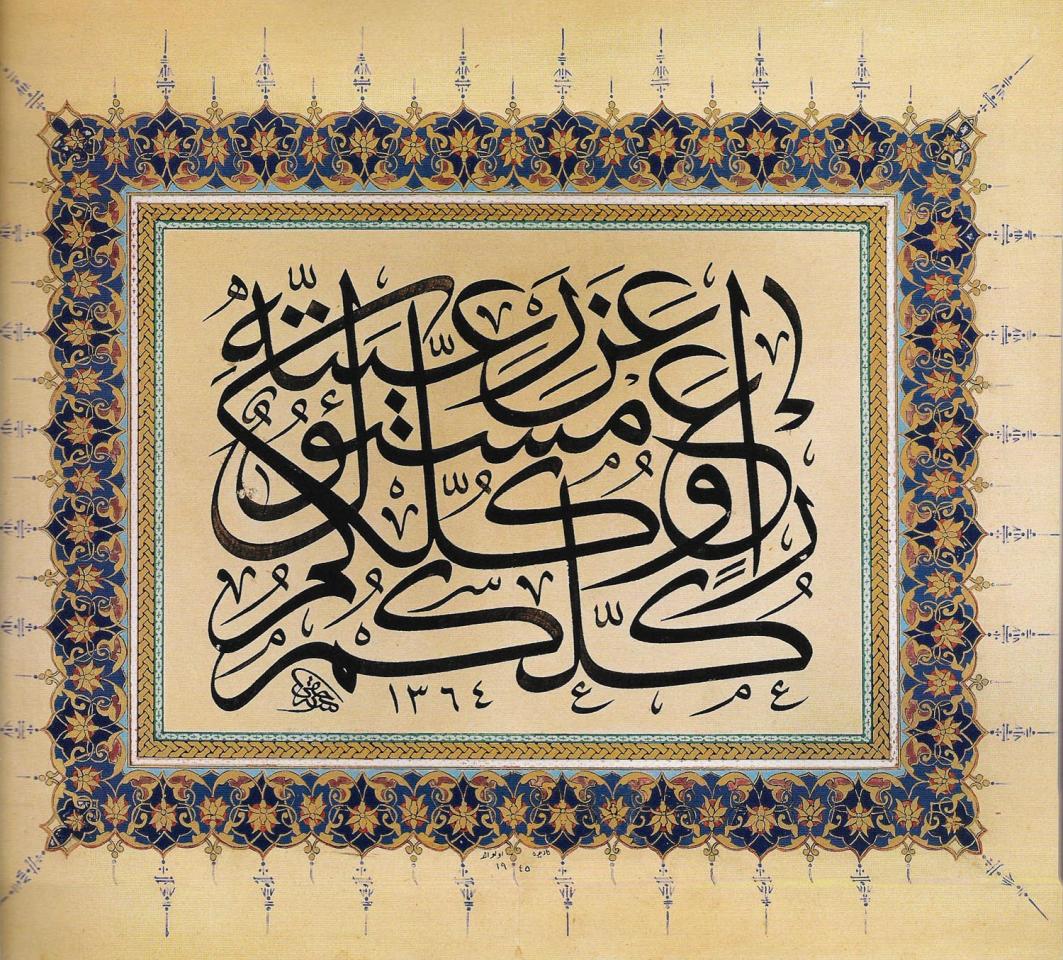 كلّكم راعٍ وكلّكم مسئول عن رعيّته
١٣٦٤
١٩٤٥